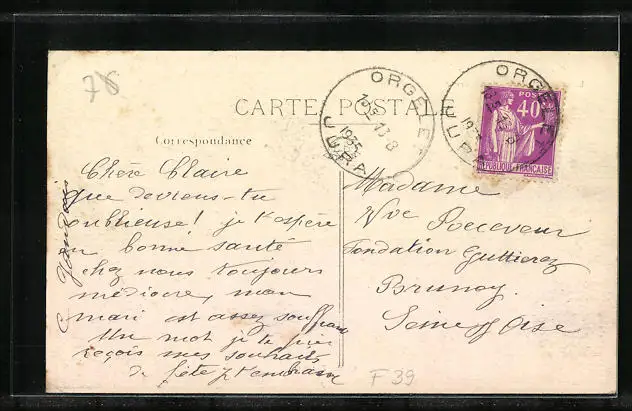 78
CARTE POSTALE
Correspondance
ORGELET
JURA
13-8
1935
ORGELET
JURA
POSTES
40c
REPUBLIQUE FRANÇAISE
Chère Claire
que deviens-tu
oublieuse! je t'espère
en bonne santé
chez nous toujours
médiocre, mon
mari est assez souffrant
Un mot je te prie
reçois mes souhaits
de fête je t'embrasse
Madame
Vve Receveur
Fondation Guttierez
Brunoy
Seine & Oise
F 39